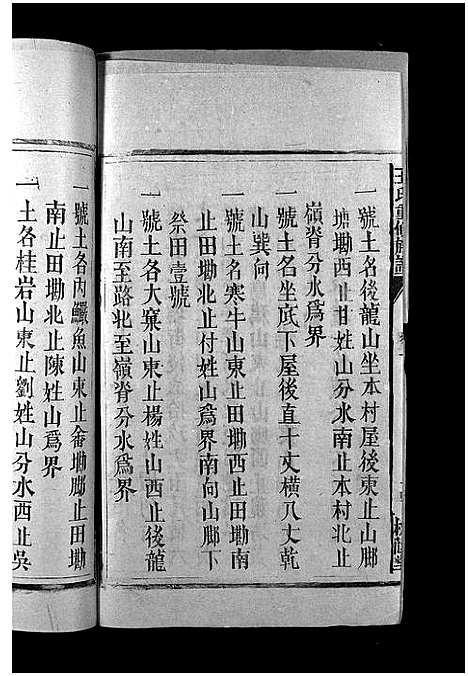 王氏重修族譜
一號土名後龍山坐本村屋後東止山脚
塘墈西止甘姓山分水南止本村北止
嶺脊分水爲界
一號土名坐底下屋後直十丈横八丈乾
山巽向
一號土名寒牛山東止田墈西止田墈南
止田墈北止付姓山爲界南向山脚下
祭田壹號
一號土名大窠山東止楊姓山西止後龍
山南至路北至嶺脊分水爲界
一號土名内鱖魚山東止畲墈脚止田墈
南止田墈北止陳姓山爲界
一土名桂岩山東止劉姓山分水西止吳